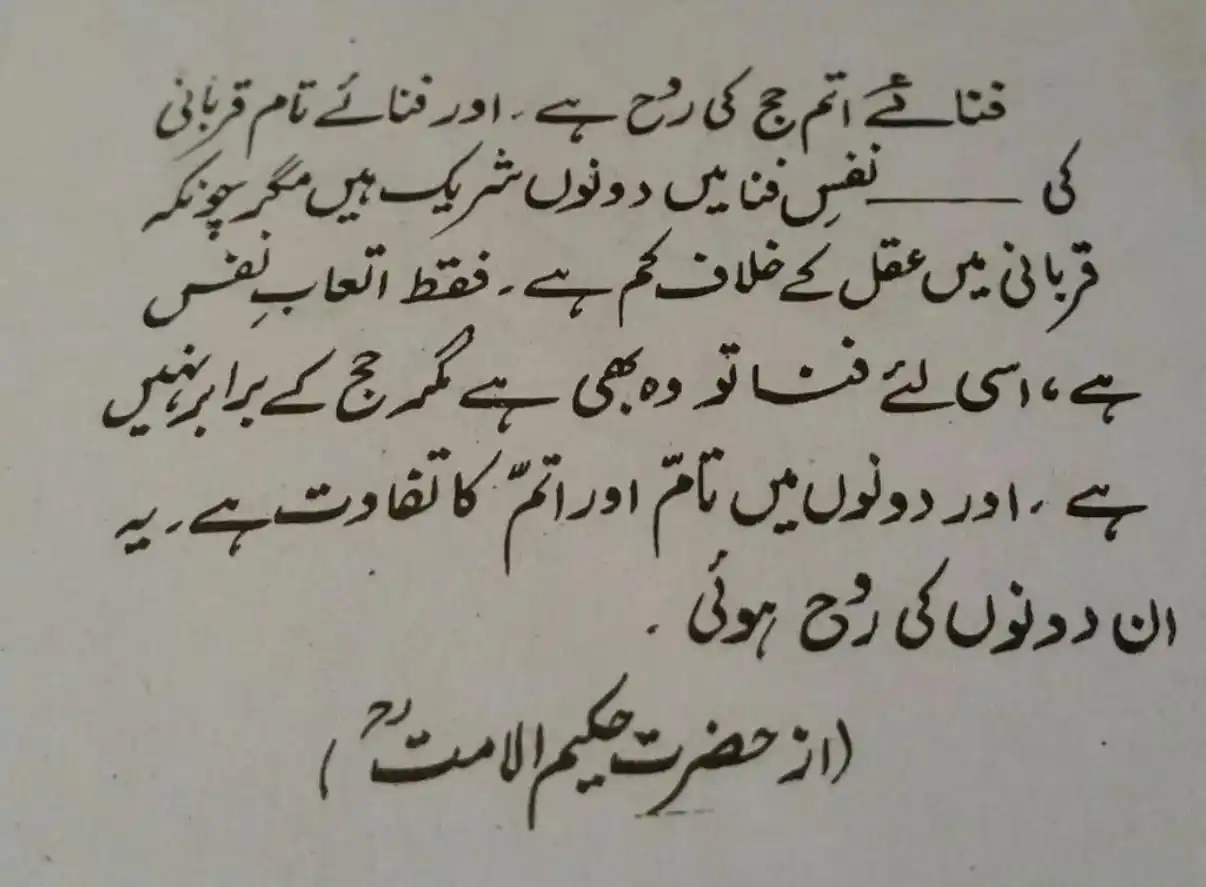 فنائے اتم حج کی روح ہے۔ اور فنائے تام قربانی
کی ——— نفسِ فنا میں دونوں شریک ہیں مگر چونکہ
قربانی میں عقل کے خلاف کم ہے۔ فقط اتعابِ نفس
ہے، اسی لئے فنا تو وہ بھی ہے مگر حج کے برابر نہیں
ہے، اور دونوں میں تامّ اور اتمّ کا تفاوت ہے۔ یہ
ان دونوں کی روح ہوئی۔
(از حضرت حکیم الامت رح)